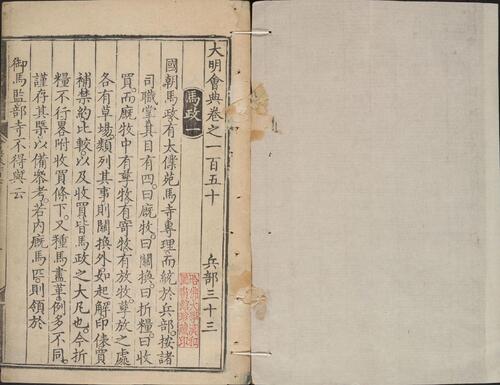 大明會典卷之一百五十
兵部三十三
馬政一
國朝馬政有太僕苑馬寺專理而統於兵部按諸
司職掌其目有四曰廐牧曰關換曰折糧曰收
買而廐牧中有孳牧有寄牧有放牧孳放之處
各有草場類列其事則關換外如起解印俵買
補禁約比較以及收買皆馬政之大凡也今折
糧不行畧附收買條下又種馬盡革例多不同
謹存其槩以備參考若內廐馬匹則領於
御馬監部寺不得與云